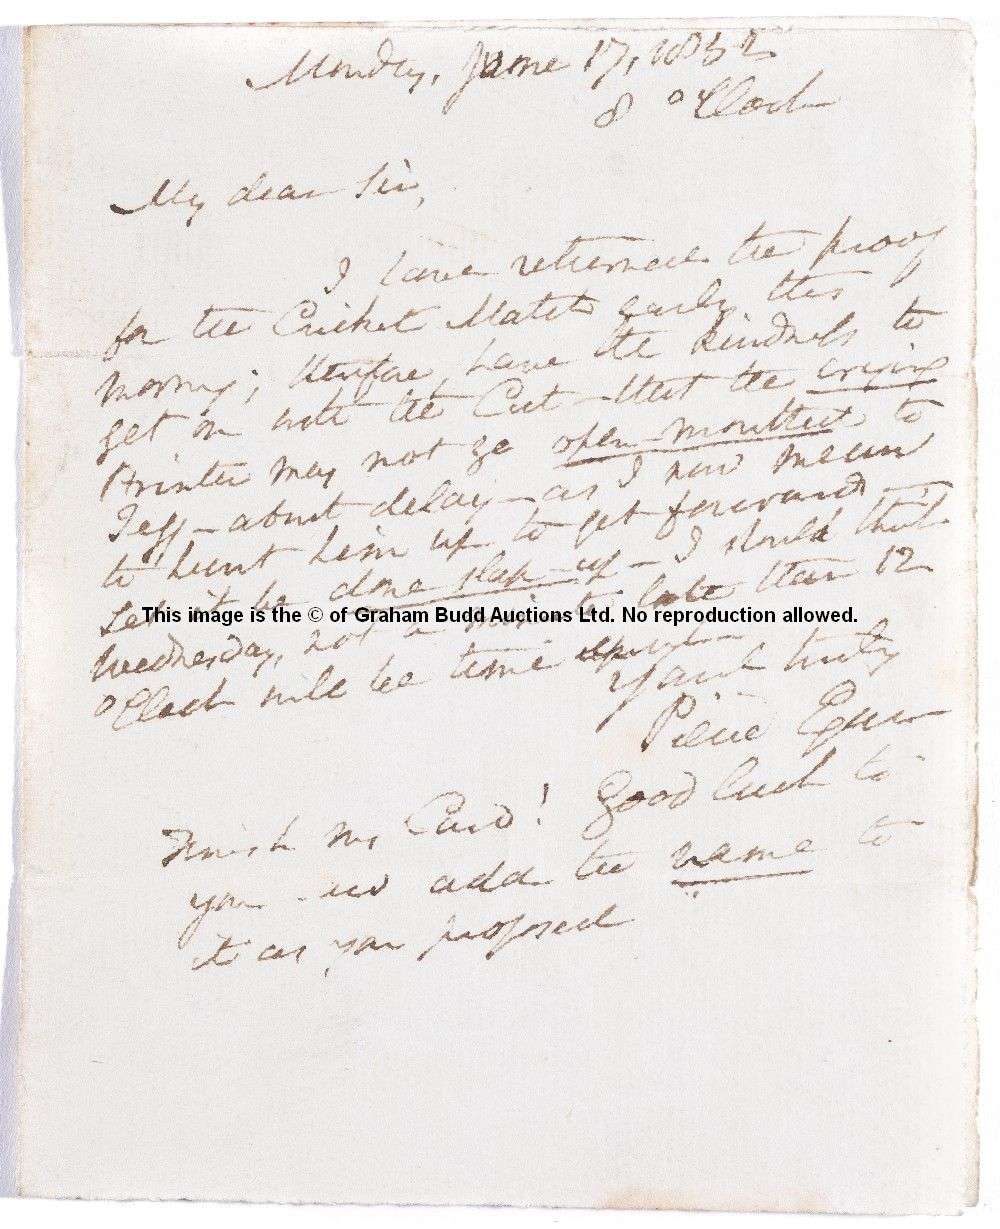 Monday, June 17, 1832
8 o'Clock
My dear Sir,
I have returned the proof
for the Cricket Match early this
morning; therefore have the kindness to
get on with the Cut — that the
Printer may not go open-mouthed to
Jeff — about delay — as I now mean
to hunt him up to get forward —
Let it be done slap-up — I should think
This image is the © of Graham Budd Auctions Ltd. No reproduction allowed.
Wednesday, not a minute later than 12
o'Clock will be time enough
Yours truly
Pierce Egan
Finish my Card! Good luck to
you — and add the name to
it as you proposed